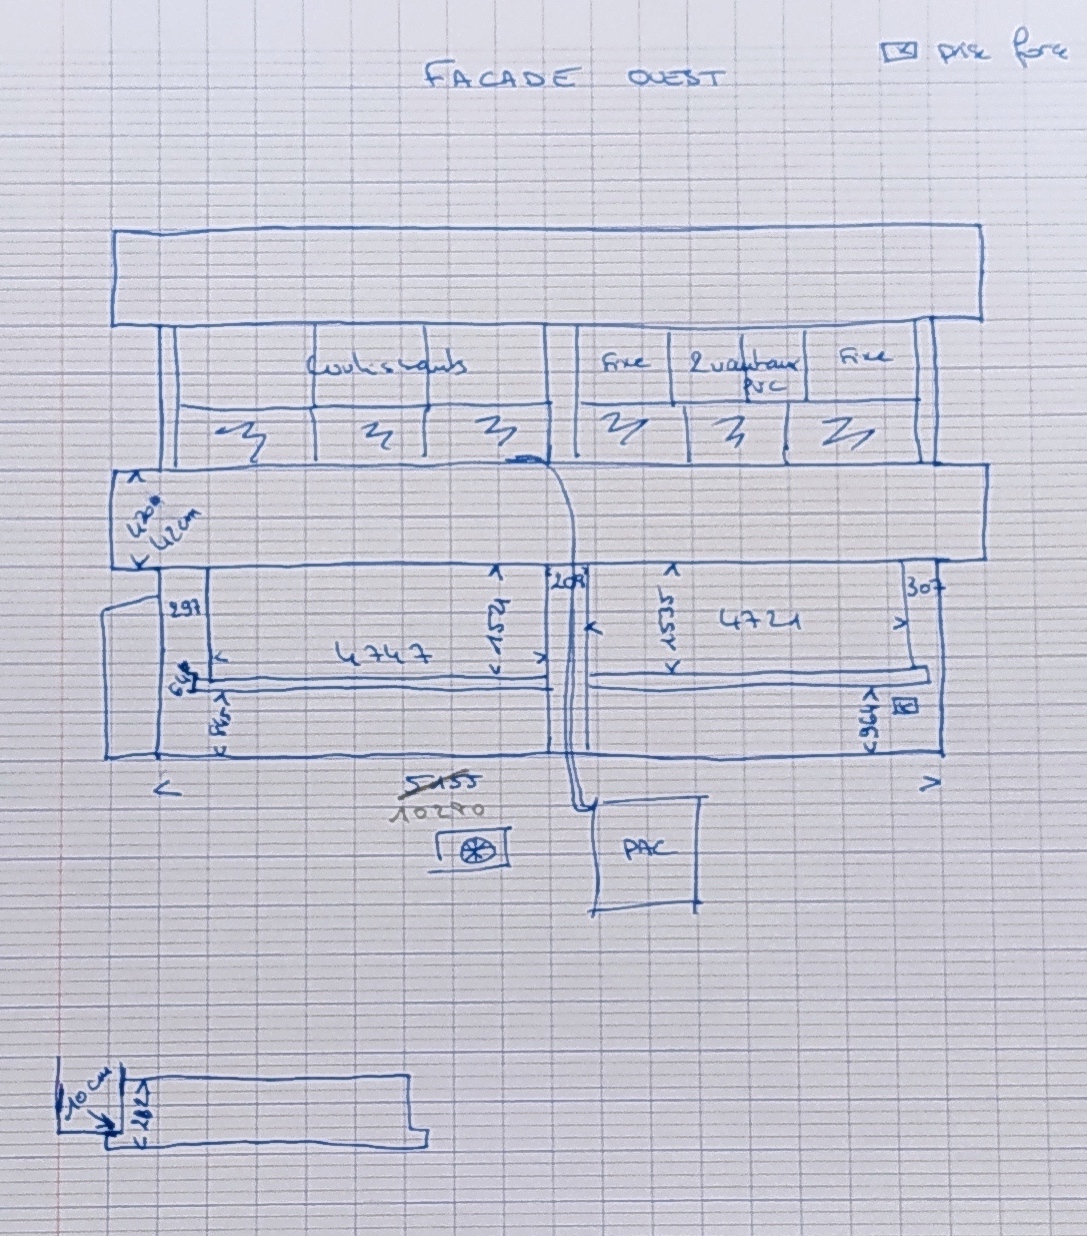 FACADE OUEST
prise force
Coulissants
Fixe
2 vantaux
PVC
Fixe
420
42 cm
297
4747
1521
208
1535
4721
307
964
5155
10270
PAC
10 cm
282